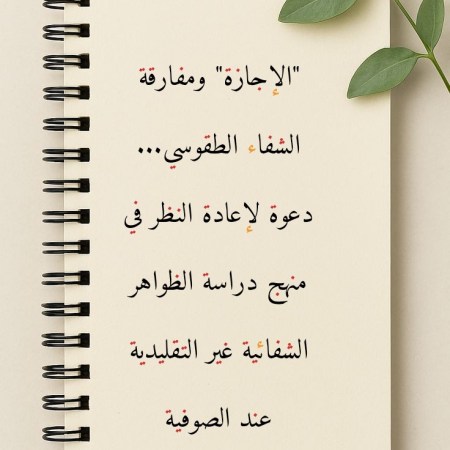 "الإجازة" ومفارقة
الشفاء الطقوسي...
دعوة لإعادة النظر في
منهج دراسة الظواهر
الشفائية غير التقليدية
عند الصوفية